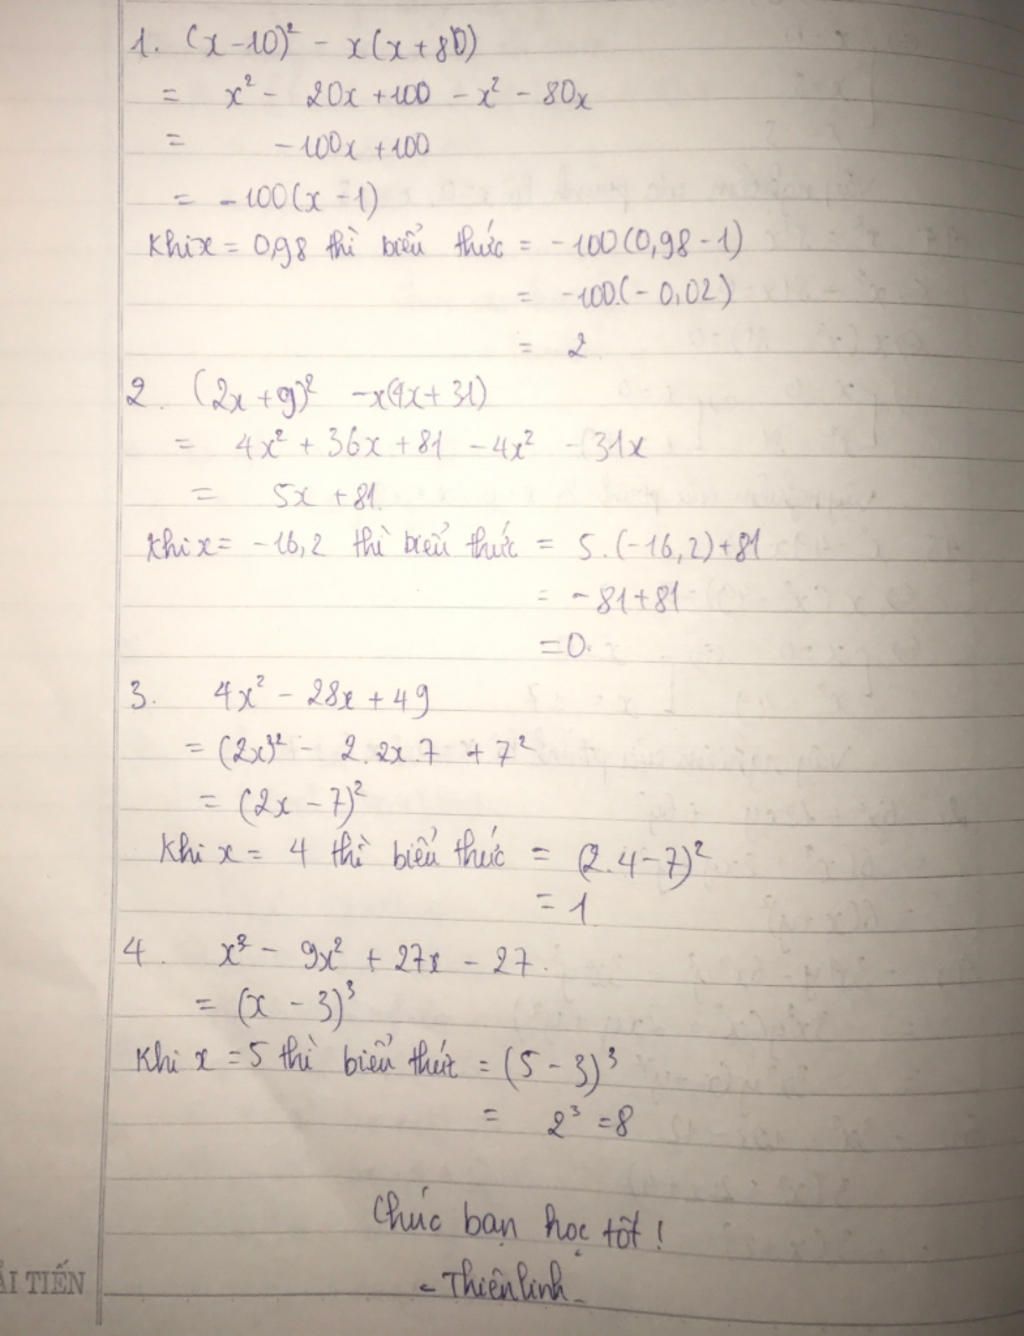 1. (x-10)² - x(x+80)
= x² - 20x + 100 - x² - 80x
= -100x + 100
= -100(x-1)
Khi x = 0,98 thì biểu thức = -100(0,98-1)
= -100.(-0,02)
= 2
2. (2x+9)² - x(4x+31)
= 4x² + 36x + 81 - 4x² - 31x
= 5x + 81.
Khi x = -16,2 thì biểu thức = 5.(-16,2)+81
= -81+81
=0.
3. 4x² - 28x + 49
= (2x)² - 2.2x.7 + 7²
= (2x-7)²
Khi x = 4 thì biểu thức = (2.4-7)²
= 1
4. x³ - 9x² + 27x - 27.
= (x - 3)³
Khi x = 5 thì biểu thức = (5-3)³
= 2³ = 8
Chúc bạn học tốt!
- Thiên linh -
ẢI TIẾN